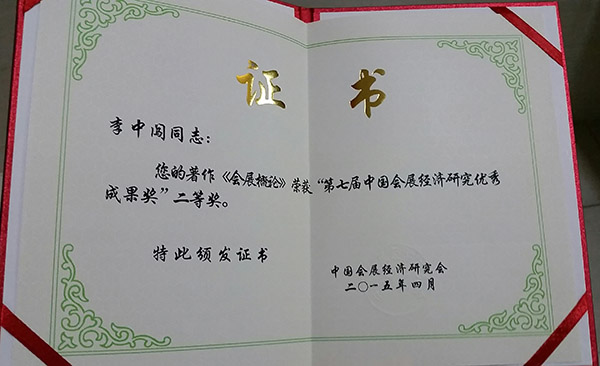 证 书
李中闯同志：
您的著作《会展概论》荣获“第七届中国会展经济研究优秀
成果奖”二等奖。
特此颁发证书
中国会展经济研究会
二〇一五年四月